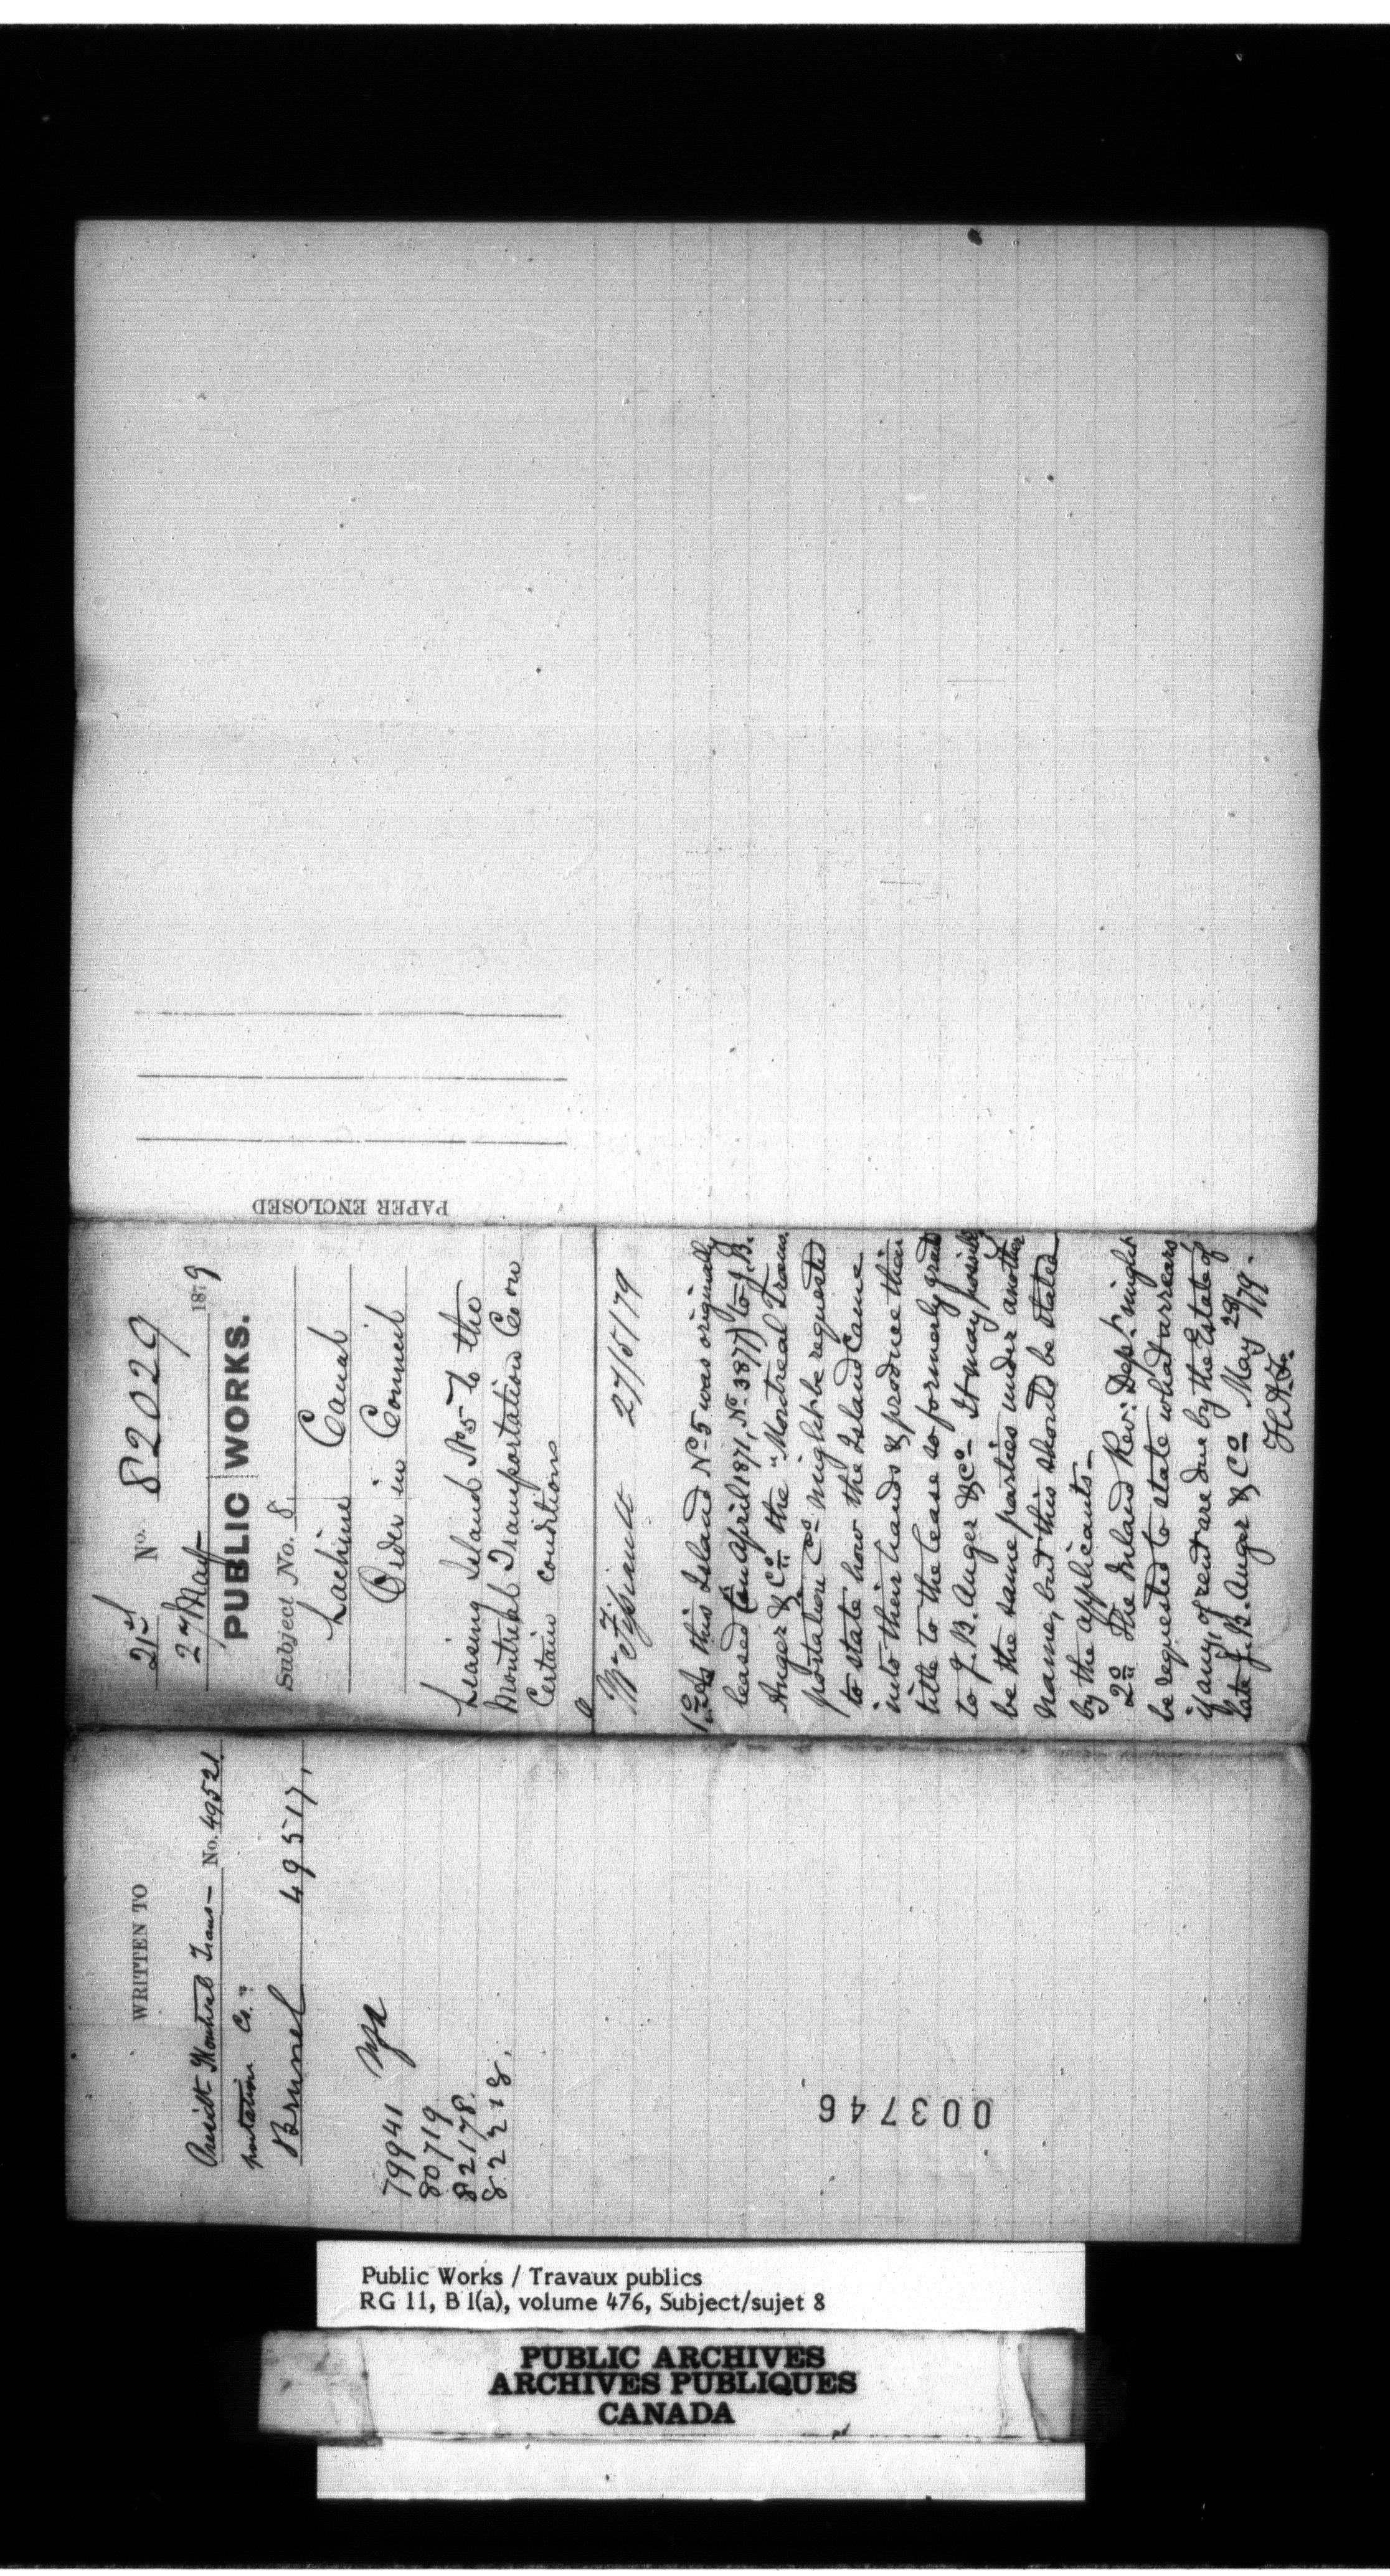 PAPER ENCLOSED
21st No. 82029
27 May 1879
PUBLIC WORKS.
Subject No. 8
Lachine Canal
Order in Council
Leasing Island No 5 to the
Montreal Transportation Co on
Certain conditions
27/5/79
1o As this Island No 5 was originally
leased (in April 1871, No 3877) to J.B.
Auger & Co. the "Montreal Trans
portation Co." might be requested
to state how the Island came
into their hands & produce their
title to the lease so formerly grantd
to J.B. Auger & Co. It may possibly
be the same parties under another
name, but this should be stated
by the applicants—
2o The Inland Rev: Dept. might
be requested to state what arrears
if any, of rent are due by the Estate of
late J.B. Auger & Co May 28/79.
WRITTEN TO
Presidt Montreal Trans— No. 49521
portation Co."
Brunel 49517,
79941
80719
82178.
82218.
003746
Public Works / Travaux publics
RG 11, B 1(a), volume 476, Subject/sujet 8
PUBLIC ARCHIVES
ARCHIVES PUBLIQUES
CANADA